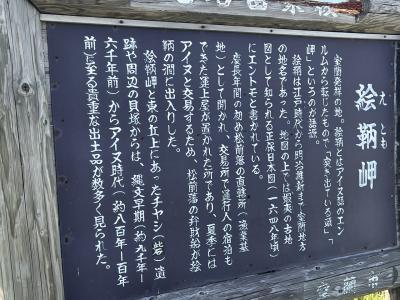 絵鞆岬
えとも
室蘭発祥の地。絵鞆とはアイヌ語のエン
ルムから転じたもので「突き出ている頭」「
岬」というのが語源。
絵鞆は江戸時代から明治維新まで室蘭地方
の地名であった。地図の上では蝦夷の古地
図として知られる正保日本図（一六四八年頃）
にエントモと書かれている。
慶長年間の初め松前藩の直轄所（漁業基
地）として開かれ、交易所で運行人の宿泊も
できた運上屋が置かれた所であり、夏季には
アイヌと交易するため、松前藩の弁財船が絵
鞆の澗に出入りした。
絵鞆岬と東の丘上にあったチャシ（砦）遺
跡や周辺の貝塚からは、縄文早期（約九千年―
六千年前）からアイヌ時代（約八百年―百年
前）に至る貴重な出土品が数多く見られた。